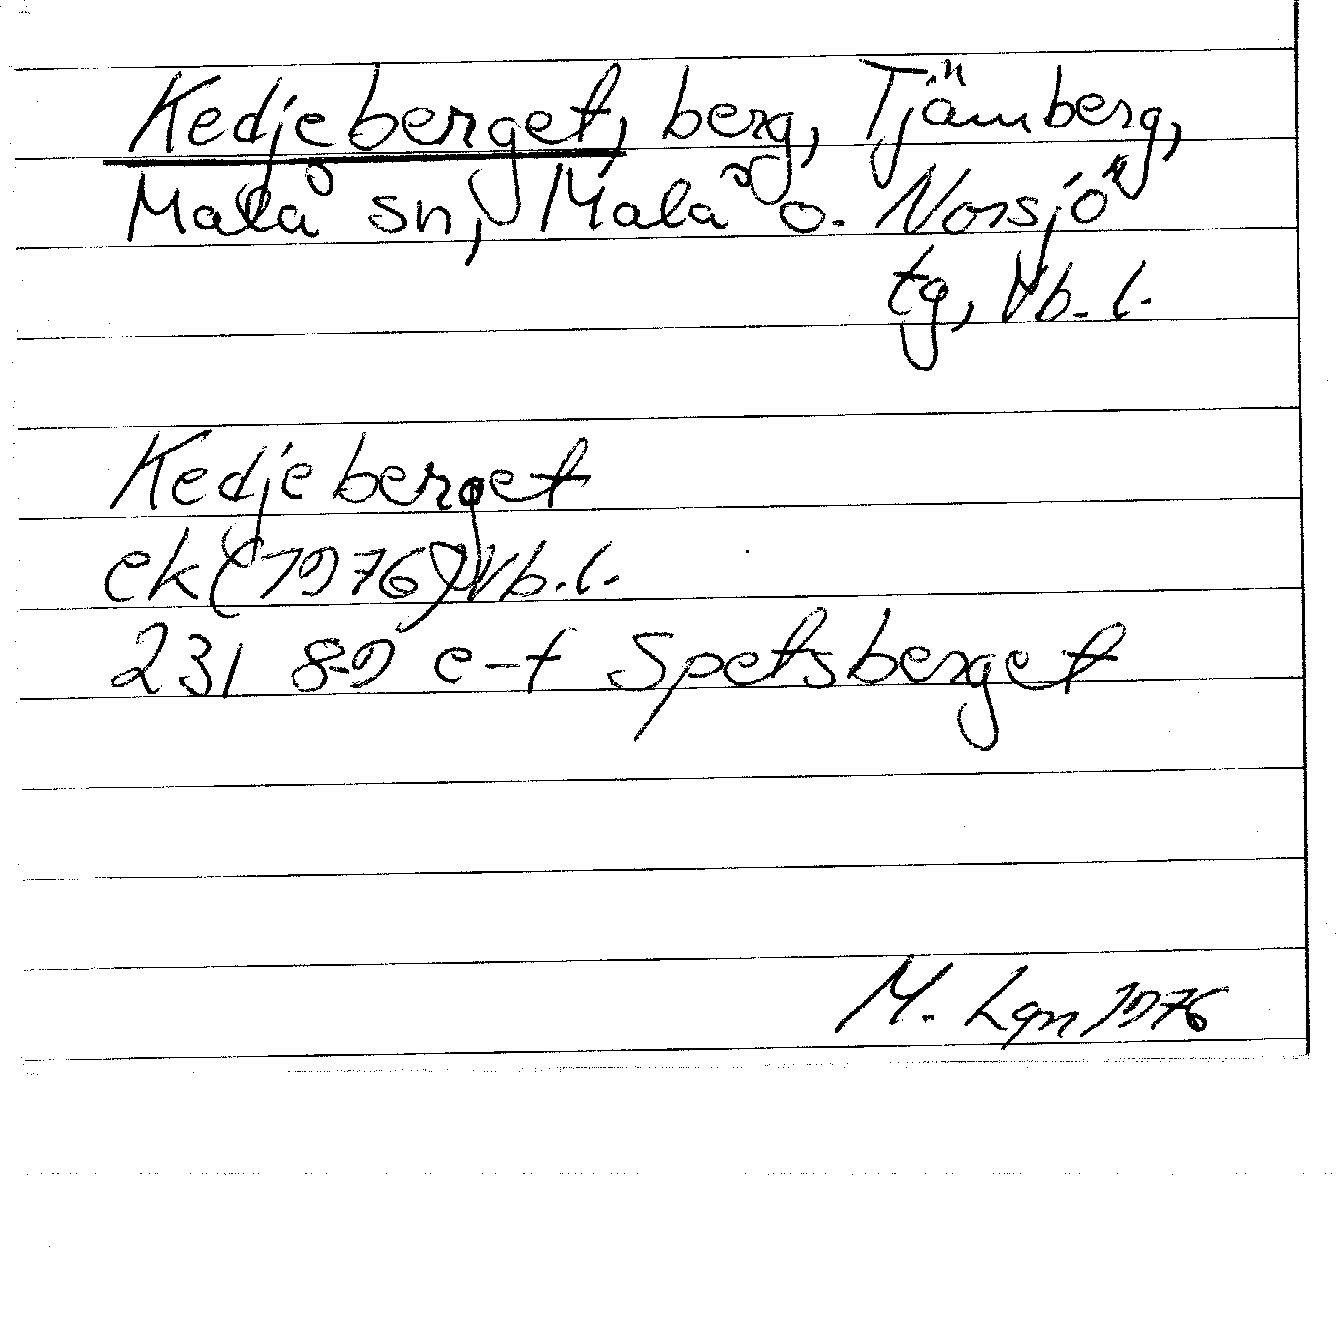 Kedjeberget, berg, Tjärnberg,
Malå sn, Malå o. Norsjö
tg, Vb. l.
Kedjeberget
ek (1976) Vb. l.
231 8-9 e-f Spetsberget
M. Lgn 1976